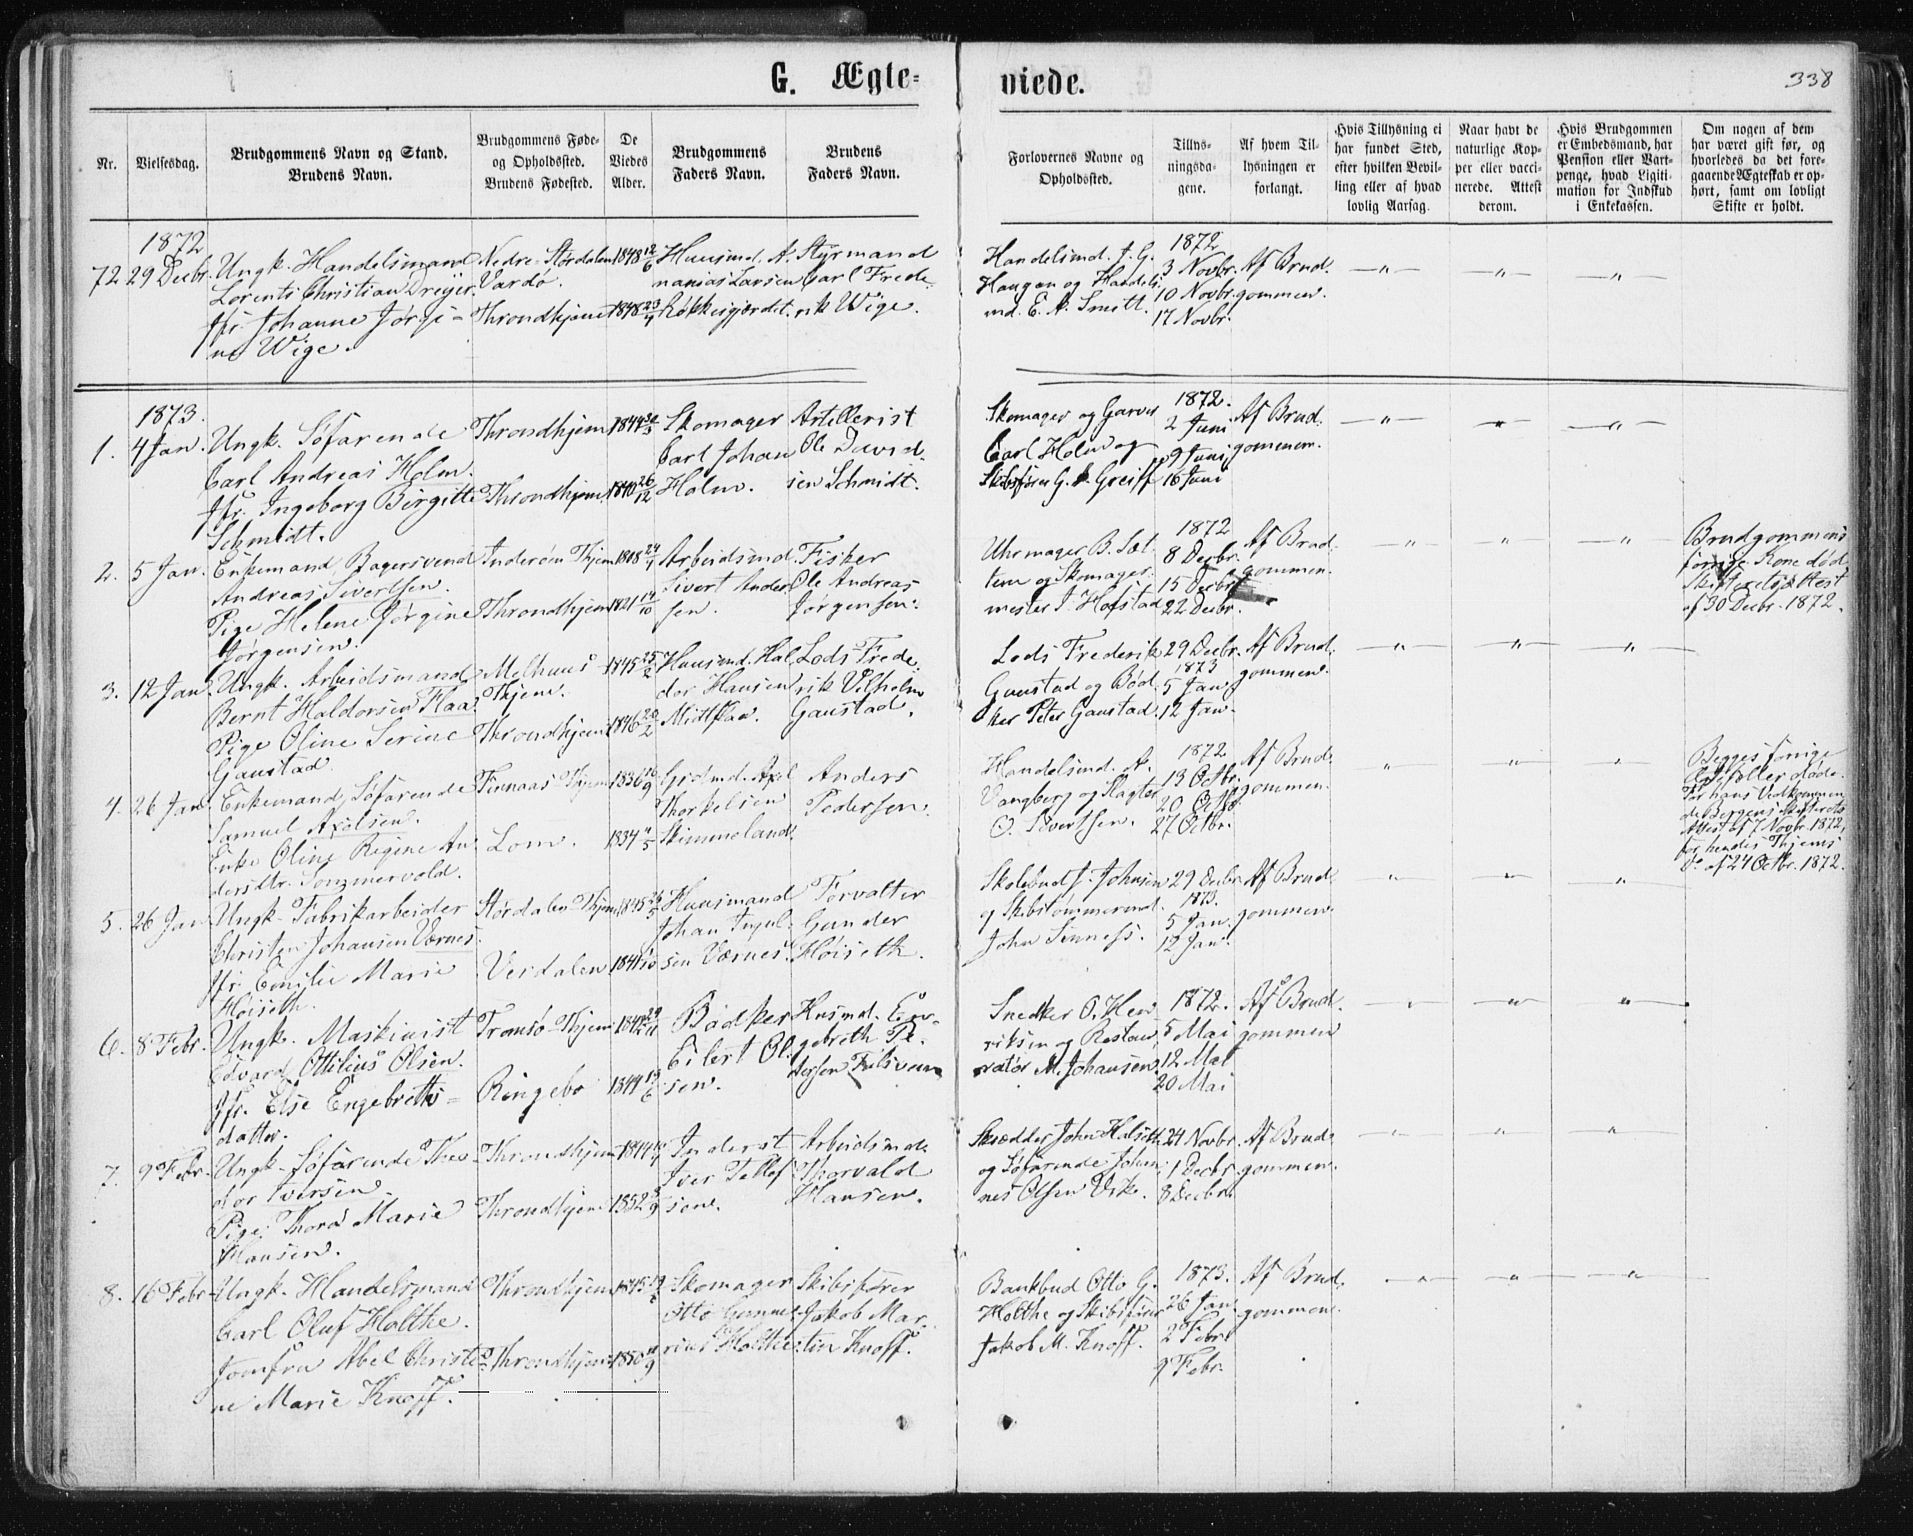 G. Ægte-
viede.
338
Nr.
Vielsesdag.
Brudgommens Navn og Stand.
Brudens Navn.
Brudgommens Føde-
og Opholdssted.
Brudens Fødested.
De
Viedes
Alder.
Brudgommens
Faders Navn.
Brudens
Faders Navn.
Forlovernes Navne og
Opholdssted.
Tillys-
ningsda-
gene.
Af hvem Til-
lysningen er
forlangt.
Hvis Tillysning ei
har fundet Sted,
efter hvilken Bevil-
ling eller af hvad
lovlig Aarsag.
Naar havt de
naturlige Kop-
per eller vacci-
nerede. Attest
derom.
Hvis Brudgommen
er Embedsmand, har
Pension eller Vart-
penge, hvad Ligiti-
mation for Indskud
i Enkekassen.
Om nogen af dem
har været gift før, og
hvorledes da det fore-
gaaende Ægteskab er op-
hørt, samt om lovligt
Skifte er holdt.
1872
72 29 Decbr.
Ungk. Handelsmand
Lorents Christian Dreyer.
Jfr. Johanne Jørgi-
ne Wige.
Nedre-Størdalen
Vardø.
Throndhjem
1848 12/6
1848 23/4
Huusmd. A-
nanias Larsen
Røkkesgjerdet.
Styrmand
Carl Frede-
rik Wige.
Handelsmd. J. G.
Haugan og Handels-
md. E. A. Smitt.
1872
3 Novbr.
10 Novbr.
17 Novbr.
Af Brud-
gommen.
1873.
1. 4 Jan.
Ungk. Søfarende
Carl Andreas Holm.
Jfr. Ingeborg Birgitte
Schmidt.
Throndhjem
Throndhjem
1844
1840 26/12
Skomager
Carl Johan
Holm.
Artillerist
Ole David-
sen Schmidt.
Skomager og Garver
Carl Holm og
Skibsfører G. Greiff
1872.
2 Juni
9 Juni
16 Juni
Af Brud-
gommen.
2. 5 Jan.
Enkemand Bagersvend
Andreas Sivertsen.
Pige Helene Jørgine
Jørgensen.
Inderøen Thjem
Throndhjem
1808 24/4
1821 14/10
Arbeidsmd.
Sivert Ander-
sen.
Fisker
Ole Andreas
Jørgensen.
Uhrmager B. Sæt-
tem og Skomager-
mester J. Hofstad
1872
8 Decbr.
15 Decbr.
22 Decbr.
Af Brud-
gommen.
Brudgommens
forrige Kone død,
Skifteretsattest
af 30 Decbr. 1872.
3. 12 Jan.
Ungk. Arbeidsmand
Bernt Haldorsen Flaa
Pige Oline Serine
Gaustad.
Melhuus
Thjem.
Throndhjem
1845 25/2
1846 20/2
Huusmd. Hal-
dor Hansen
Midtflaa.
Lods Frede-
rik Vilhelm
Gaustad.
Lods Frederik
Gaustad og Bød-
ker Peter Gaustad.
29 Decbr.
1873
5 Jan.
12 Jan.
Af Brud-
gommen.
4. 26 Jan.
Enkemand, Søfarende
Samuel Axelsen.
Enke Oline Regine An-
dersdtr. Sommervold.
Finnaas Thjem
Lom.
1836 16/9
1834
Grdmd. Axel
Thorkelsen
Skimmeland.
Anders
Pedersen.
Handelsmd. A.
Vangberg og Slagter
O. Sivertsen.
1872
13 Octbr.
20 Octbr.
27 Octbr.
Af Brud-
gommen.
Begges forrige
Ægtefæller døde.
For hans Vedkommen-
de Bergens Skifterets
Attest af 7 Novbr. 1872,
for hendes Thjems
Do. af 24 Octbr. 1872.
5. 26 Jan.
Ungk. Fabrikarbeider
Christen Johansen Værnes.
Jfr. Emilie Marie
Høiseth.
Størdalen Thjem
Verdalen
1845
1841
Huusmand
Johan
sen Værnes.
Forvalter
Gunder
Høiseth.
Skolebud J. Johnsen
og Skibstømmermd.
John Sinness.
29 Decbr.
1873.
5 Jan.
12 Jan.
Af Brud-
gommen.
6. 8 Febr.
Ungk. Maskinist
Edvard Ottilius Olsen.
Jfr. Else Engebretts-
datter.
Tromsø Thjem
Ringebo
1842 29/11
1849
Bødker
Eilert Ol-
sen.
Husmd. En-
gebreth Pe-
dersen
Snedker O. Hen-
riksen og Restau-
ratør M. Johansen.
1872.
5 Mai
12 Mai
20 Mai
Af Brud-
gommen
7. 9 Febr.
Ungk. Søfarende Theo-
dor Iversen
Pige Thora Marie
Hansen.
Throndhjem
Throndhjem
1844
1852
Inderst
Iver Tellef-
sen.
Arbeidsmd.
Thorvald
Hansen.
Skrædder John Halseth
og Søfarende Johan-
nes Olsen Vik.
24 Novbr.
1 Decbr.
8 Decbr.
Af Brud-
gommen.
8. 16 Febr.
Ungk. Handelsmand
Carl Oluf Holthe.
Jomfru Abel Christi-
ne Marie Knoff.
Throndhjem
Throndhjem
1845
1850
Skomager
Otto Gunne-
rius Holthe.
Skibsfører
Jakob Mar-
tin Knoff.
Bankbud Otto G.
Holthe og Skibsfører
Jakob M. Knoff.
1873.
26 Jan.
2 Febr.
9 Febr.
Af Brud-
gommen.